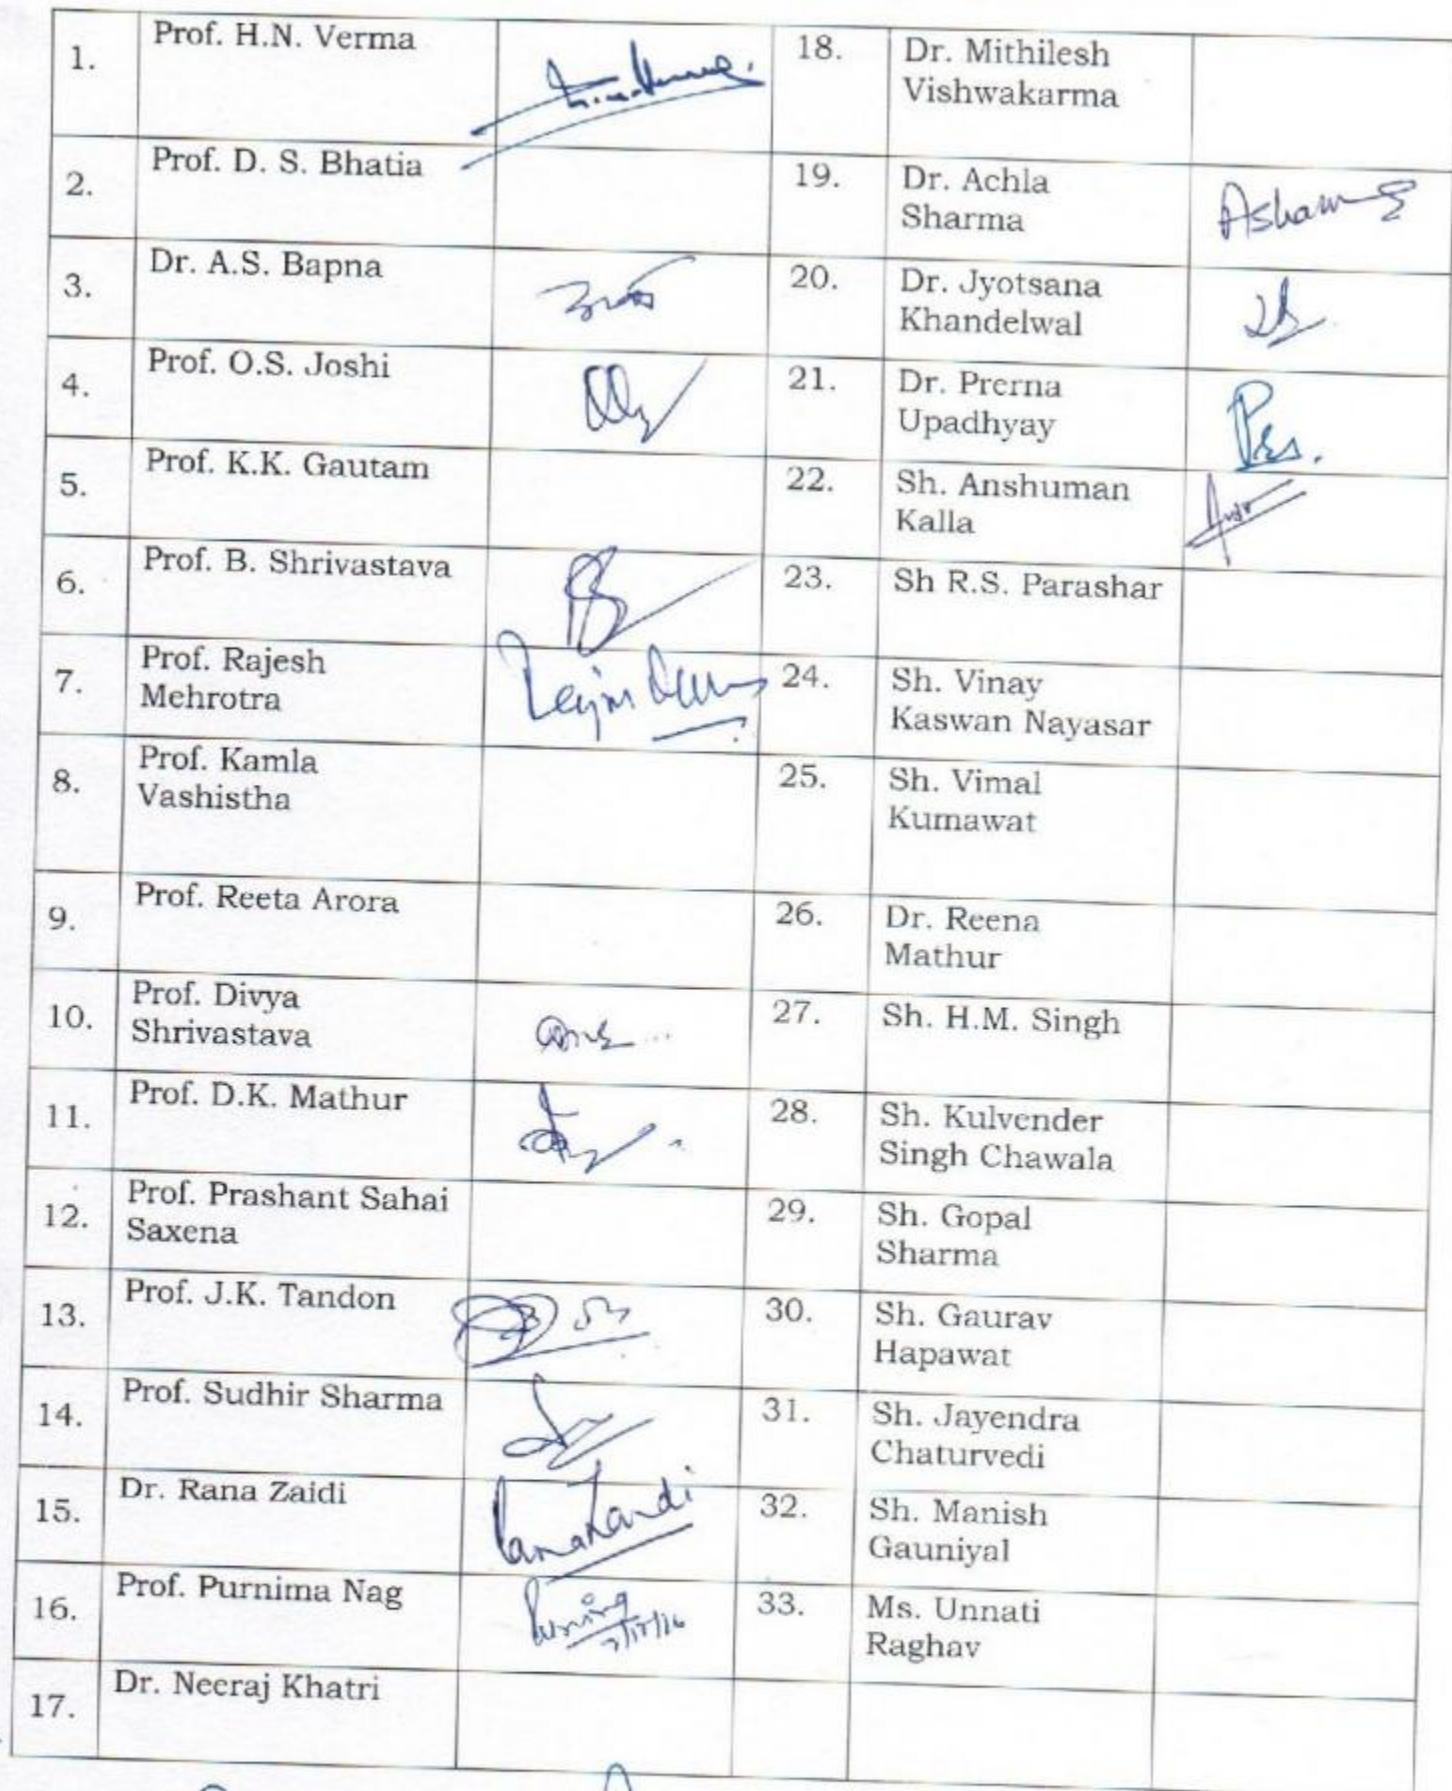 1.
Prof. H.N. Verma
18.
Dr. Mithilesh
Vishwakarma
2.
Prof. D. S. Bhatia
19.
Dr. Achla
Sharma
3.
Dr. A.S. Bapna
20.
Dr. Jyotsana
Khandelwal
4.
Prof. O.S. Joshi
21.
Dr. Prerna
Upadhyay
5.
Prof. K.K. Gautam
22.
Sh. Anshuman
Kalla
6.
Prof. B. Shrivastava
23.
Sh R.S. Parashar
7.
Prof. Rajesh
Mehrotra
24.
Sh. Vinay
Kaswan Nayasar
8.
Prof. Kamla
Vashistha
25.
Sh. Vimal
Kumawat
9.
Prof. Reeta Arora
26.
Dr. Reena
Mathur
10.
Prof. Divya
Shrivastava
27.
Sh. H.M. Singh
11.
Prof. D.K. Mathur
28.
Sh. Kulvender
Singh Chawala
12.
Prof. Prashant Sahai
Saxena
29.
Sh. Gopal
Sharma
13.
Prof. J.K. Tandon
30.
Sh. Gaurav
Hapawat
14.
Prof. Sudhir Sharma
31.
Sh. Jayendra
Chaturvedi
15.
Dr. Rana Zaidi
32.
Sh. Manish
Gauniyal
16.
Prof. Purnima Nag
33.
Ms. Unnati
Raghav
17.
Dr. Neeraj Khatri